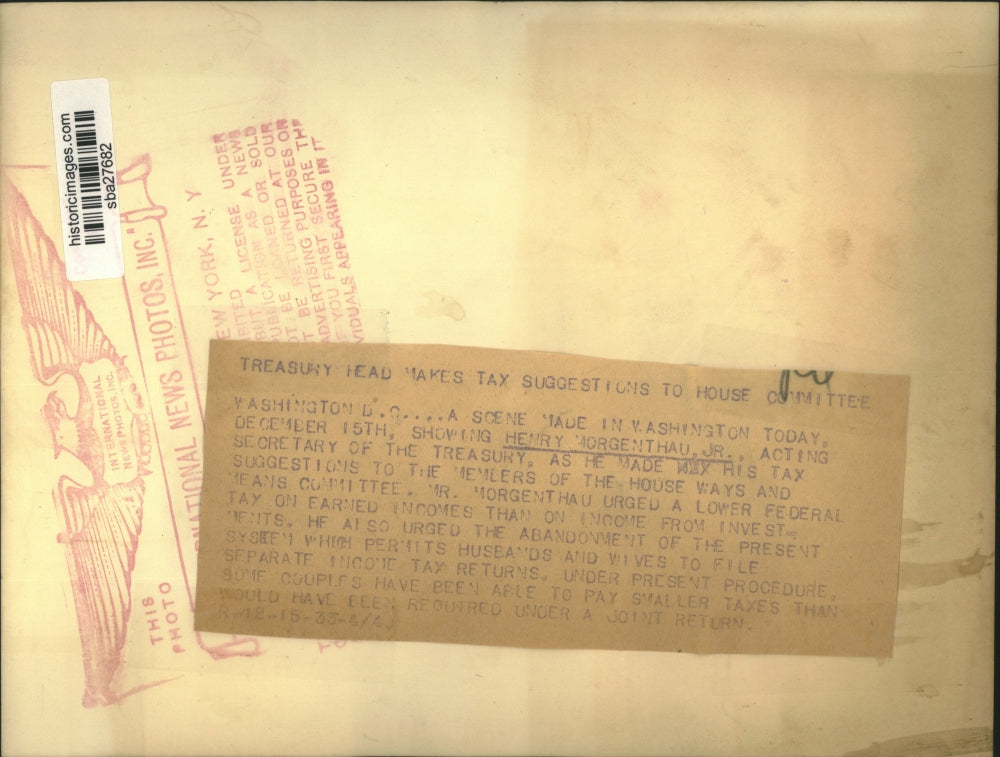 historicimages.com
sba27682
INTERNATIONAL
NEWS PHOTOS, INC.
NATIONAL NEWS PHOTOS, INC.
EW YORK, N. Y
LICENSE UNDER
BUT A AS A NEWS
PUBLICATION OR SOLD
OT BE LOANED AT OUR
T BE RETURNED OR
ADVERTISING PURPOSES THE
YOU FIRST SECURE
VIDUALS APPEARING IN IT
THIS
PHOTO
TREASURY HEAD MAKES TAX SUGGESTIONS TO HOUSE COMMITTEE
WASHINGTON D.C....A SCENE MADE IN WASHINGTON TODAY,
DECEMBER 15TH, SHOWING HENRY MORGENTHAU, JR., ACTING
SECRETARY OF THE TREASURY, AS HE MADE HIS TAX
SUGGESTIONS TO THE MEMBERS OF THE HOUSE WAYS AND
MEANS COMMITTEE. MR. MORGENTHAU URGED A LOWER FEDERAL
TAX ON EARNED INCOMES THAN ON INCOME FROM INVEST-
MENTS. HE ALSO URGED THE ABANDONMENT OF THE PRESENT
SYSTEM WHICH PERMITS HUSBANDS AND WIVES TO FILE
SEPARATE INCOME TAX RETURNS. UNDER PRESENT PROCEDURE,
SOME COUPLES HAVE BEEN ABLE TO PAY SMALLER TAXES THAN
WOULD HAVE BEEN REQUIRED UNDER A JOINT RETURN.
R-12-15-33-4/4